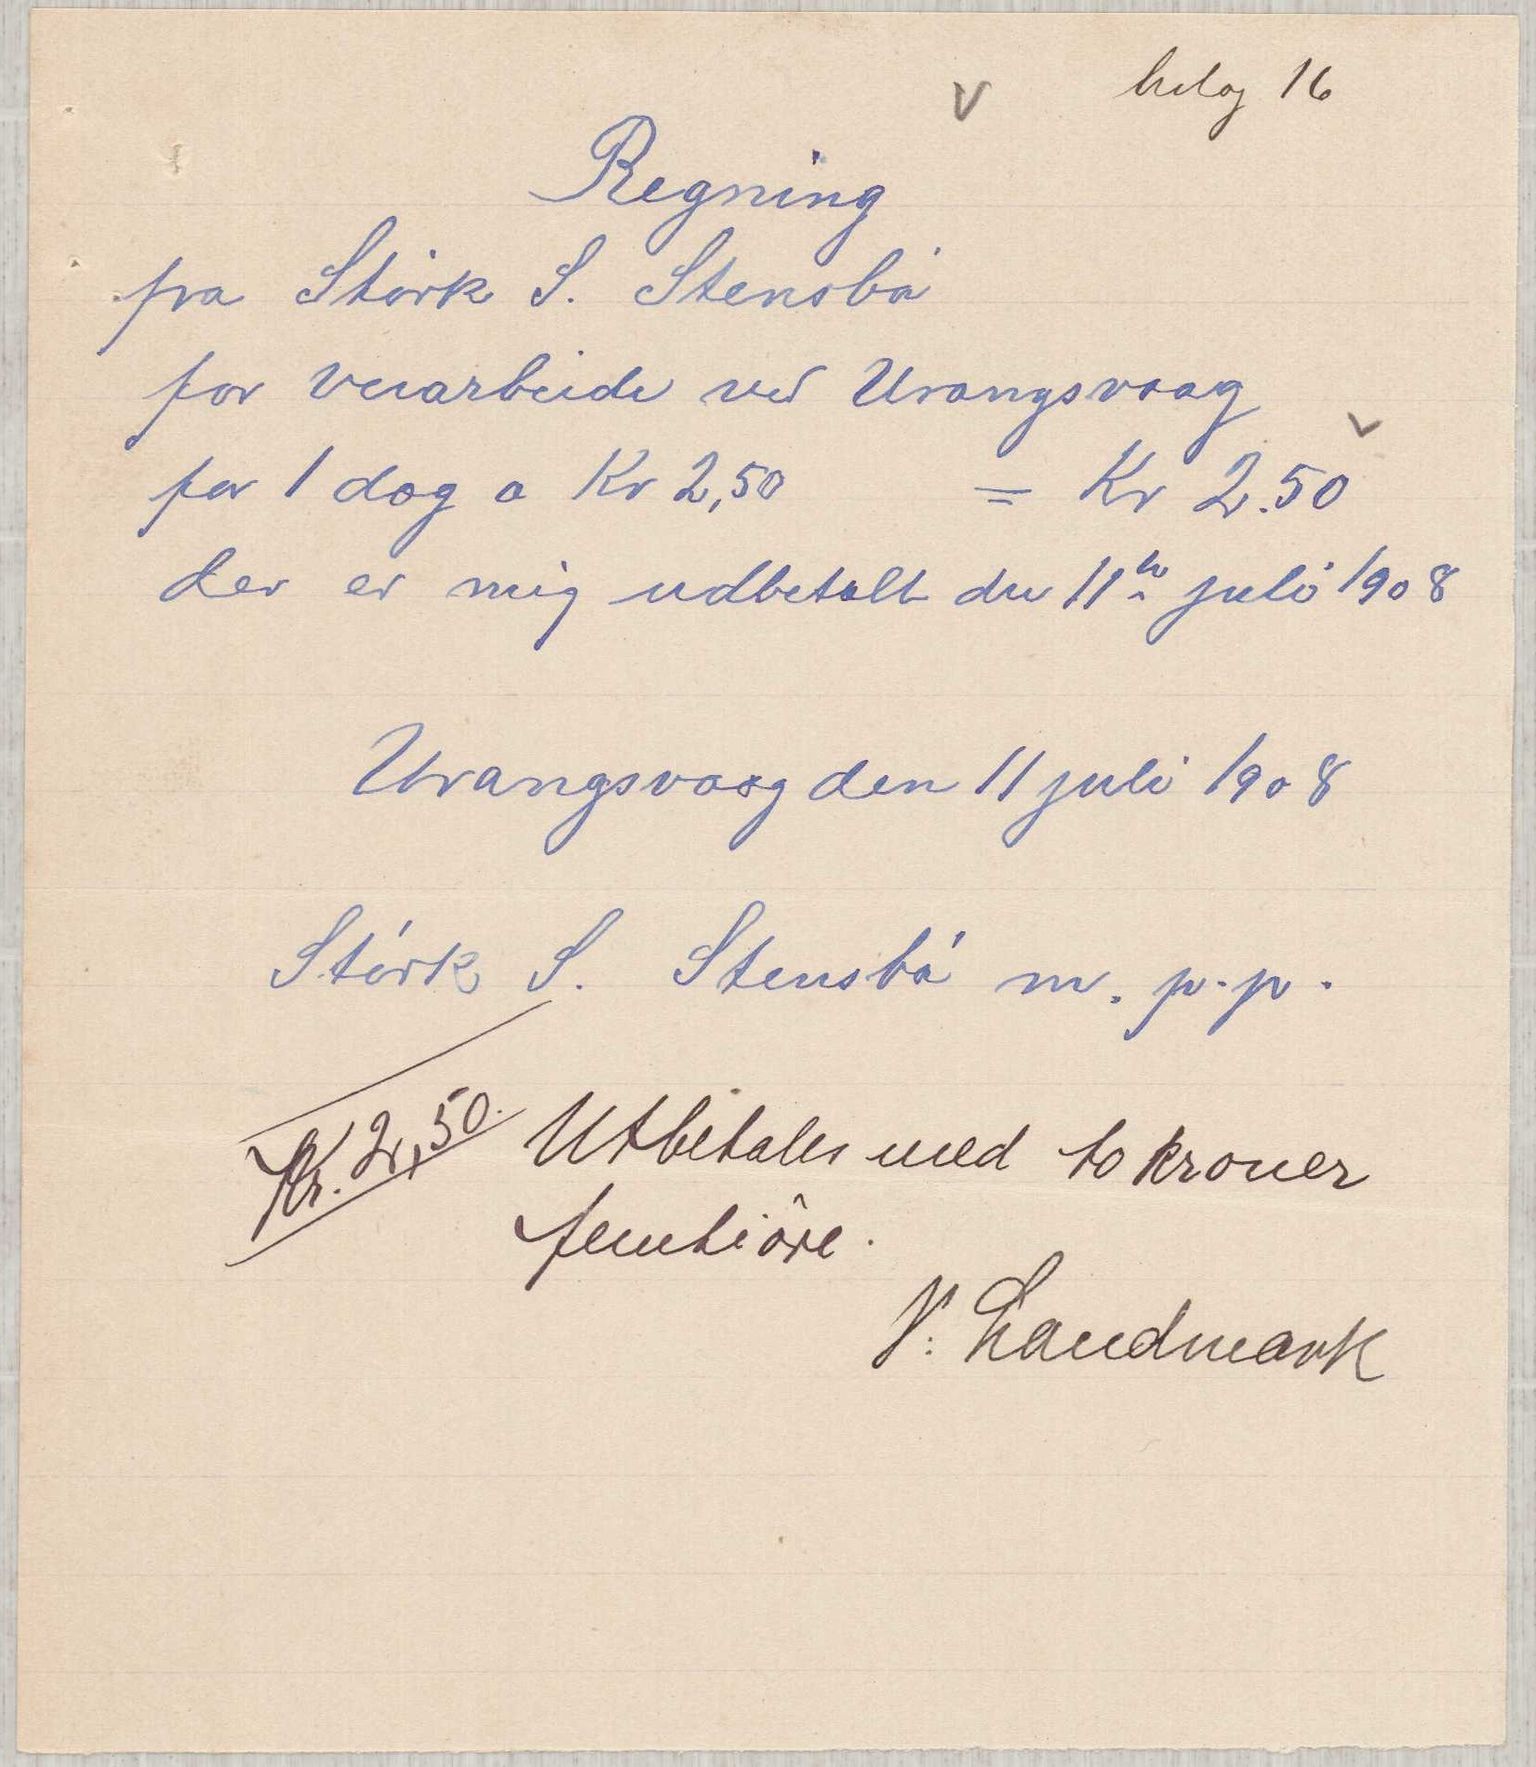 bilag 16
Regning
fra Störk S. Stensbö
for veiarbeide ved Urangsvaag
for 1 dag a Kr 2,50 = Kr 2.50
der er mig udbetalt den 11te juli 1908
Urangsvaag den 11 juli 1908
Störk S. Stensbö m. p. p.
Kr. 2,50. Utbetales med to kroner
femtiöre.
N. Landmark